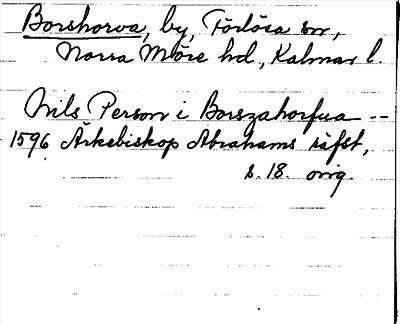 Borshorva, by, Förlösa sn,
Norra Möre hd., Kalmar l.
Nils Person i Borszahorfua --
1596 Ärkebiskop Abrahams räfst,
s. 18. orig.